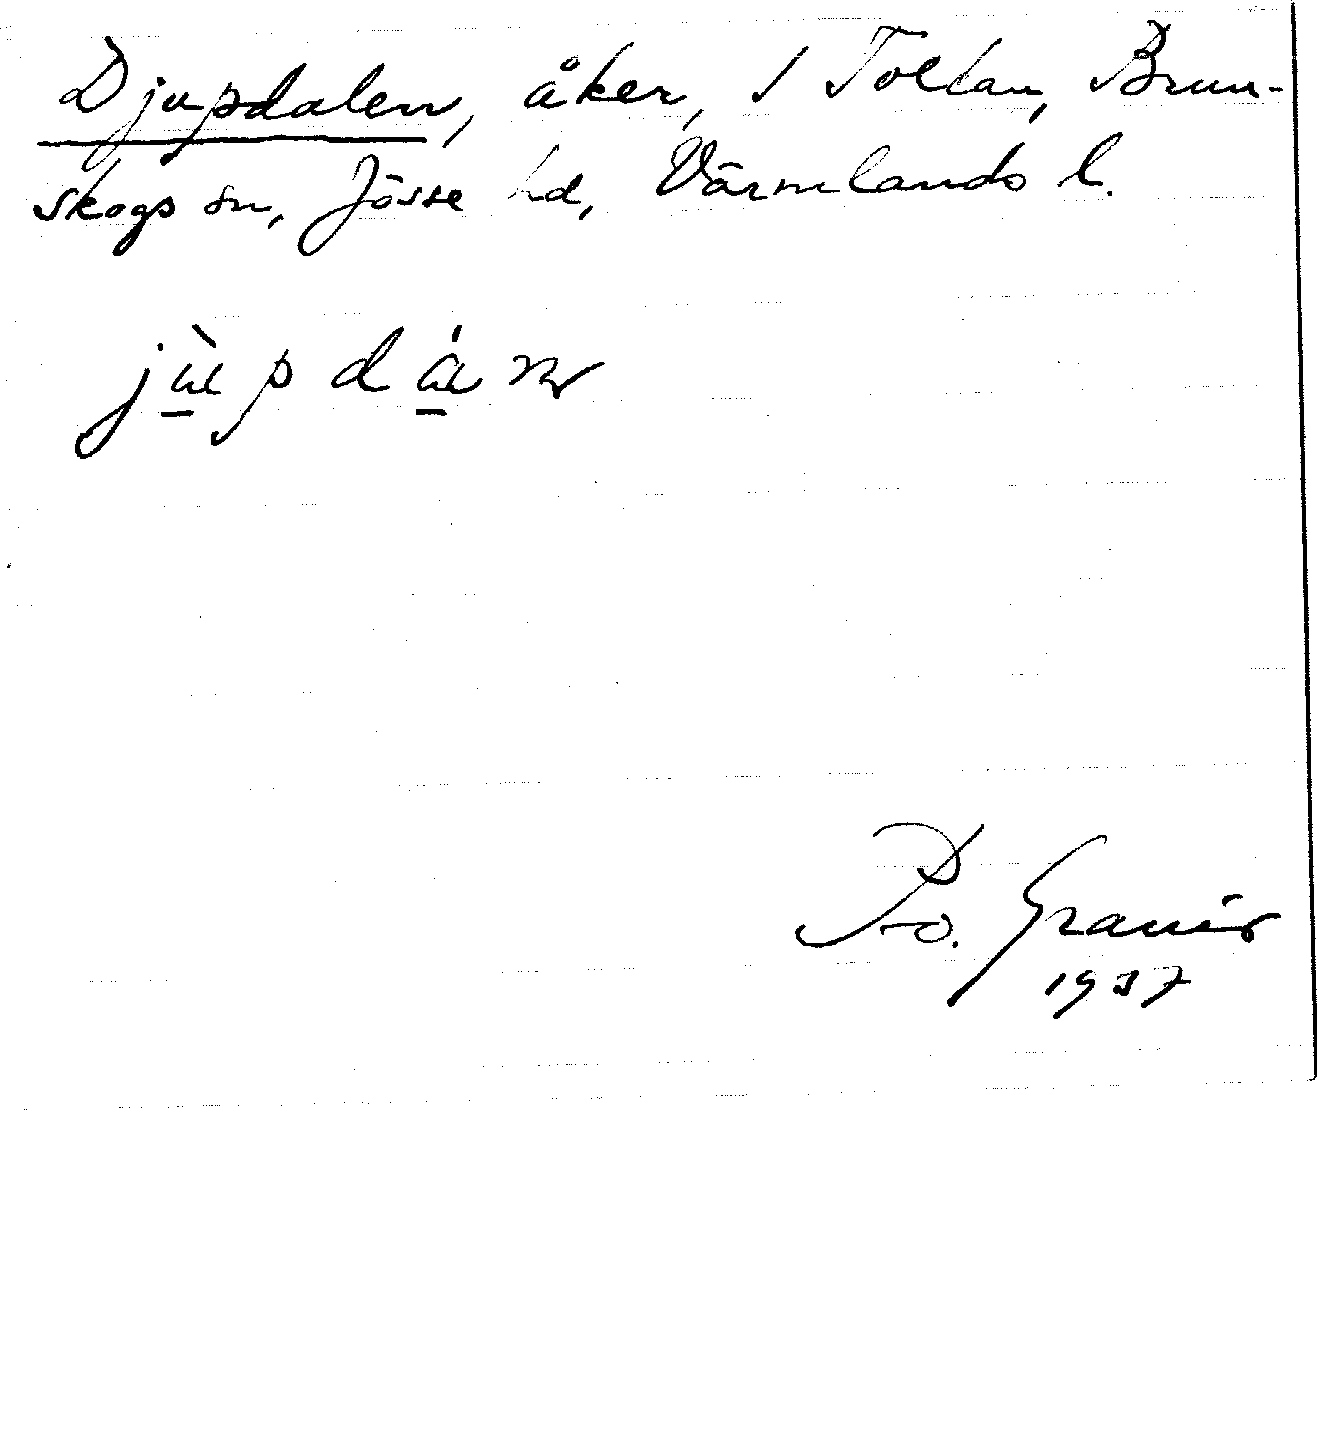 Djupdalen, åker, 1 Toltan, Brun-
skogs sn, Jösse hd, Värmlands l.
jùpdán
Ro. Granér
1937